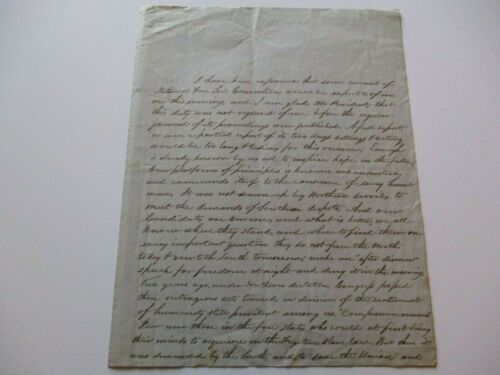 I have been informed that some account of
National Free Soil Convention would be expected of me
me this evening, and I am glad Mr President, that
this duty was not required of me before the regular
journal of its proceedings were published. A full report,
or even a partial report of its two days sittings & acting
would be too long & tedious for this occasion. Enough
is already known by us all to inspire hope in the future.
Our platform of principles is known and understood
and commends itself to the conscience of every honest
man. It was not drawn up by Northern servility to
meet the demands of Southern despots. And our
Candidates are known, and what is better, we all
know where they stand, and where to find them on
every important question. They do not face the North
today & veer to the South tomorrow; make an "after dinner
speech for freedom at night and deny it in the morning.
Two years ago, under Southern dictation Congress passed
those outrageous acts termed in derision of the sentiment
of humanity still prevalent among us, "Compromise measures
Few were those in the free States, who could at first bring
their minds to acquiesce in the Fugitive Slave Law. But then it
was demanded by the South, and to save the Union; and